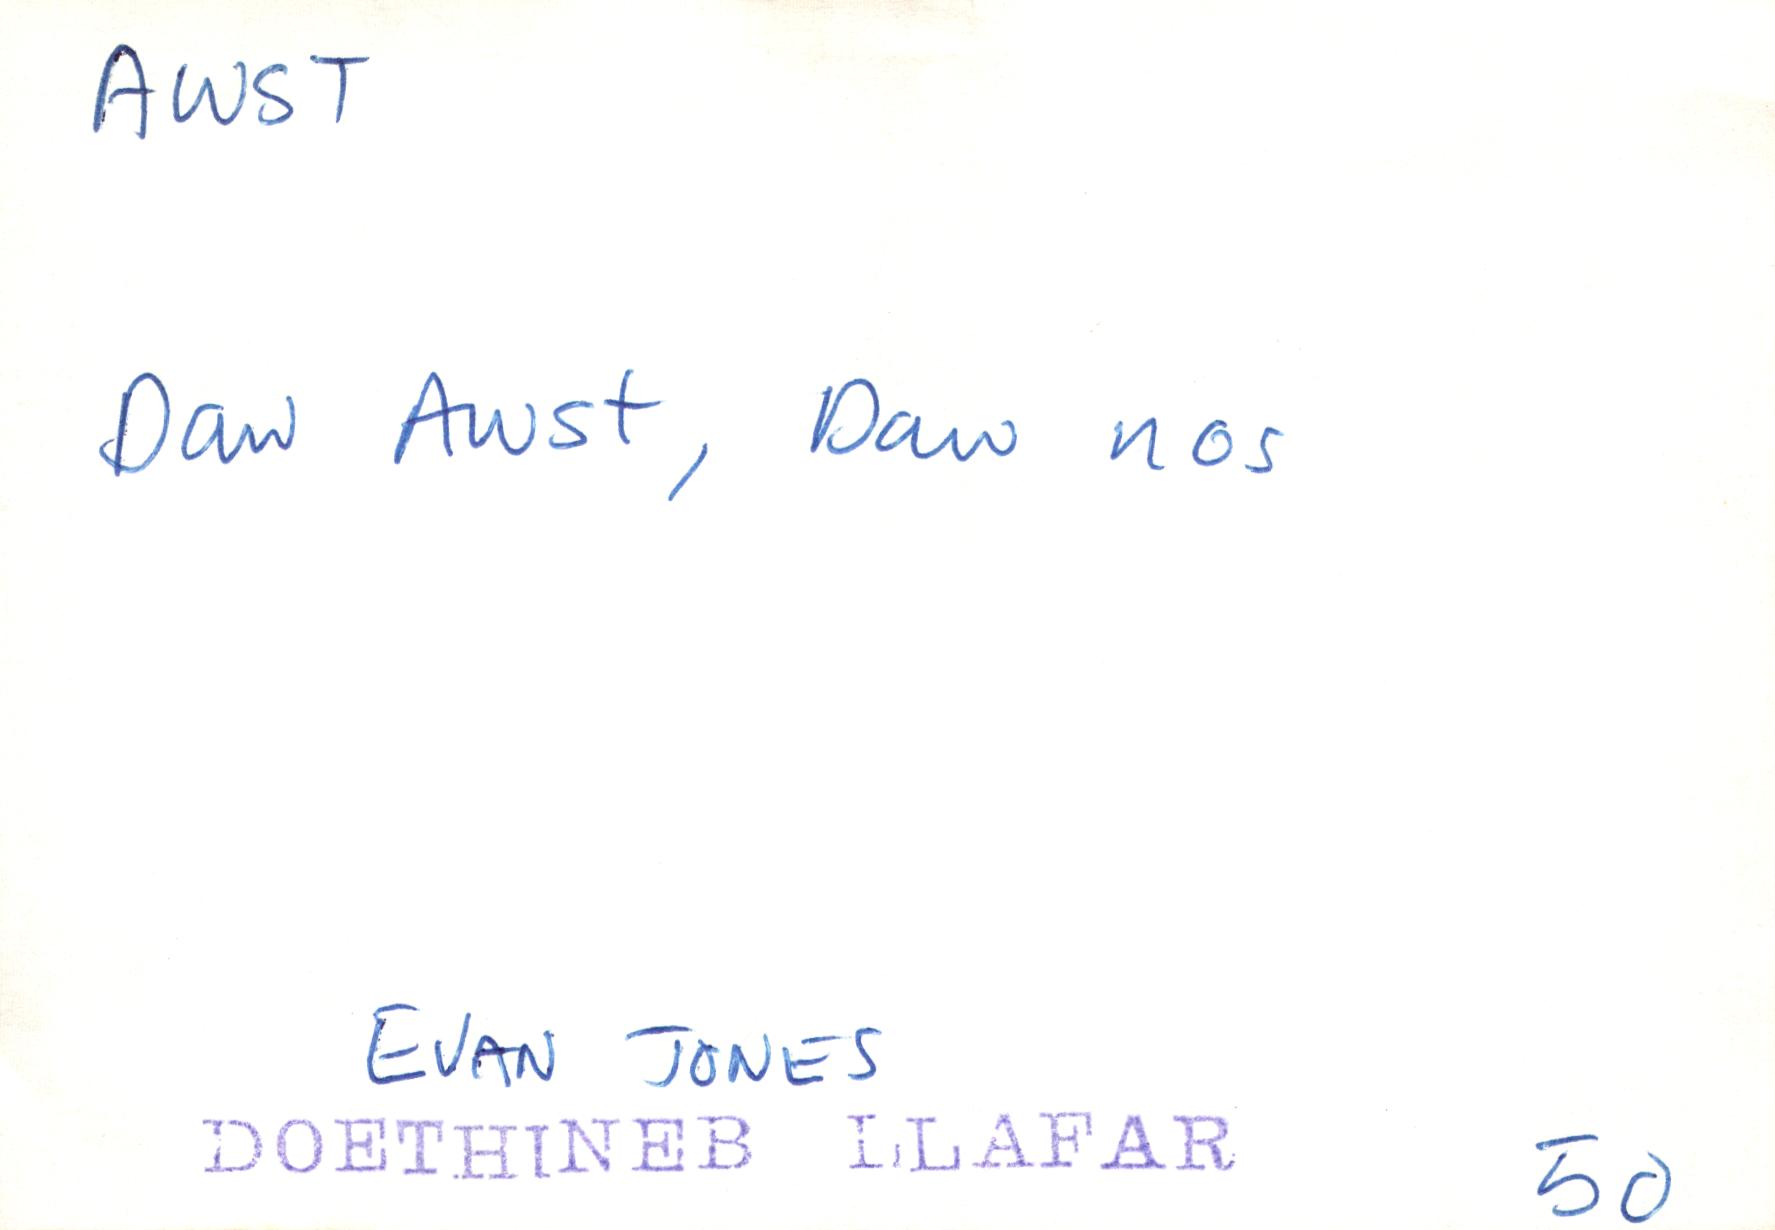 AWST
Daw Awst, Daw nos
EVAN JONES
DOETHINEB LLAFAR
50